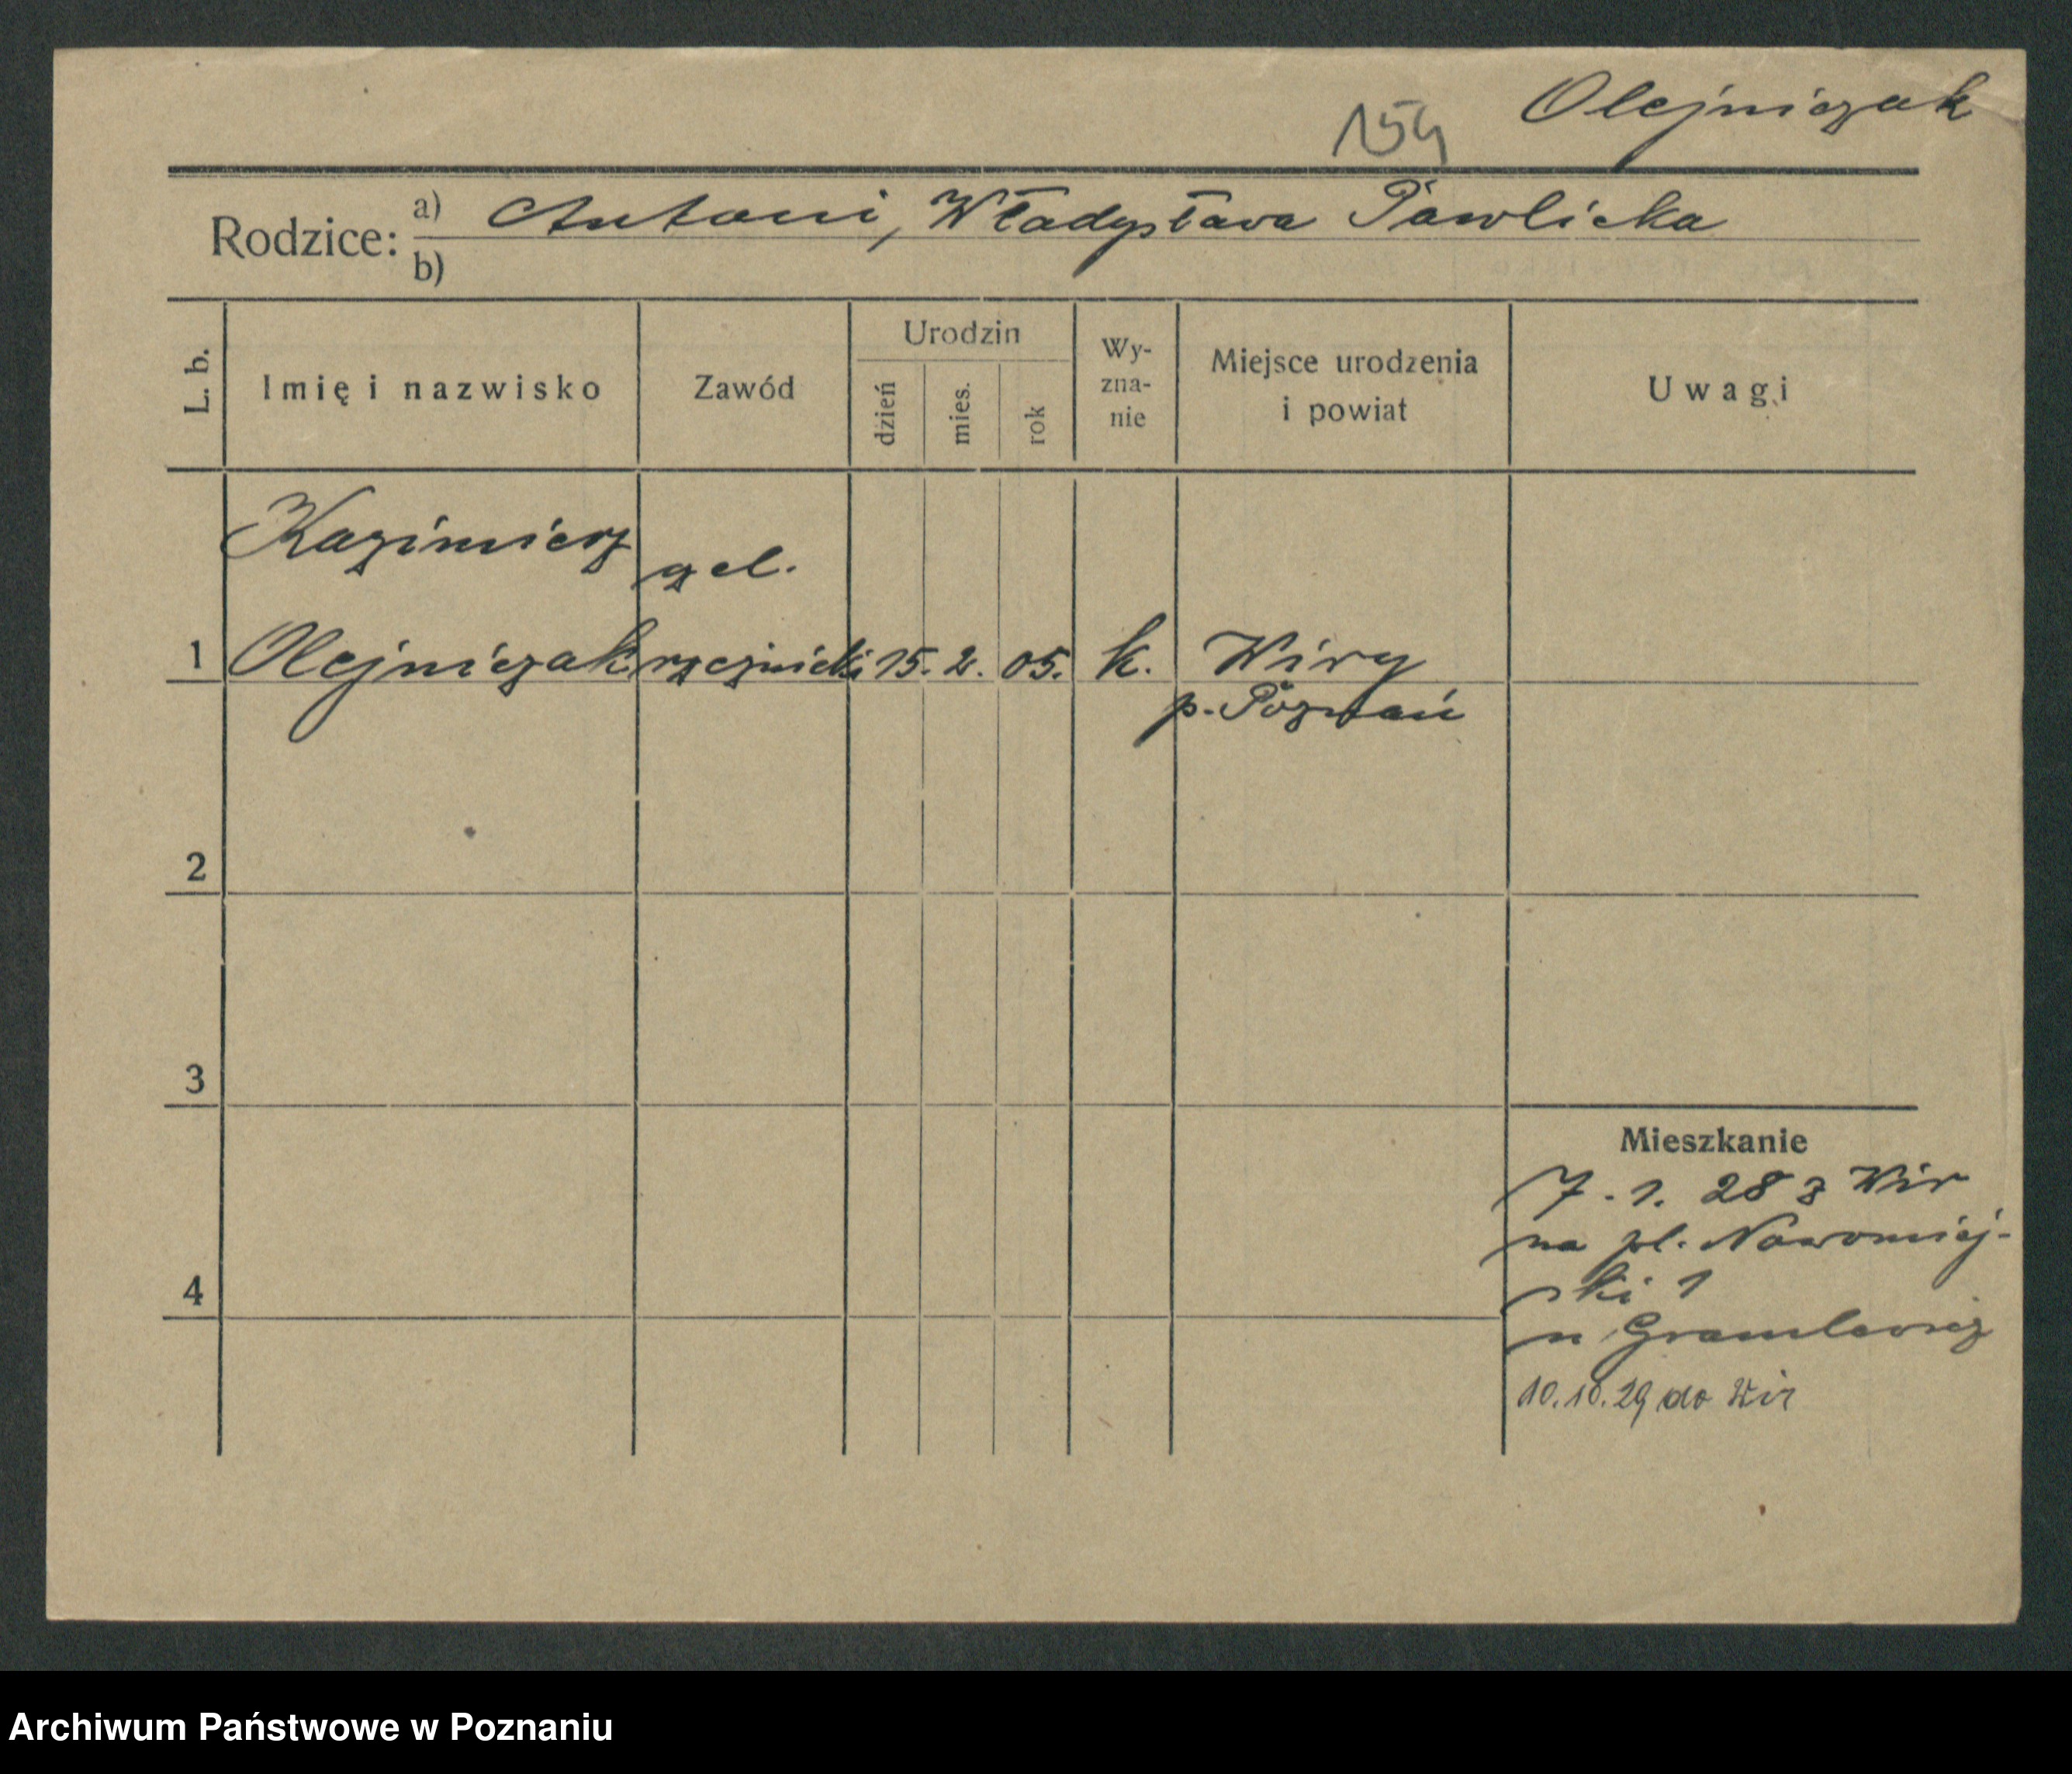 Olejniczak
154
Rodzice: a) Antoni, Władysława Pawlicka
b)
L. b.
Imię i nazwisko
Zawód
Urodzin
dzień
mies.
rok
Wy-
zna-
nie
Miejsce urodzenia
i powiat
Uwagi
Kazimierz
czel.
1 Olejniczak rzeźnicki 15. 2. 05. k. Wiry
p. Poznań
2
3
4
Mieszkanie
7. 1. 28 z Wir
na pl. Nowomiej-
ski 1
u
10.10.29 do Wir
Archiwum Państwowe w Poznaniu